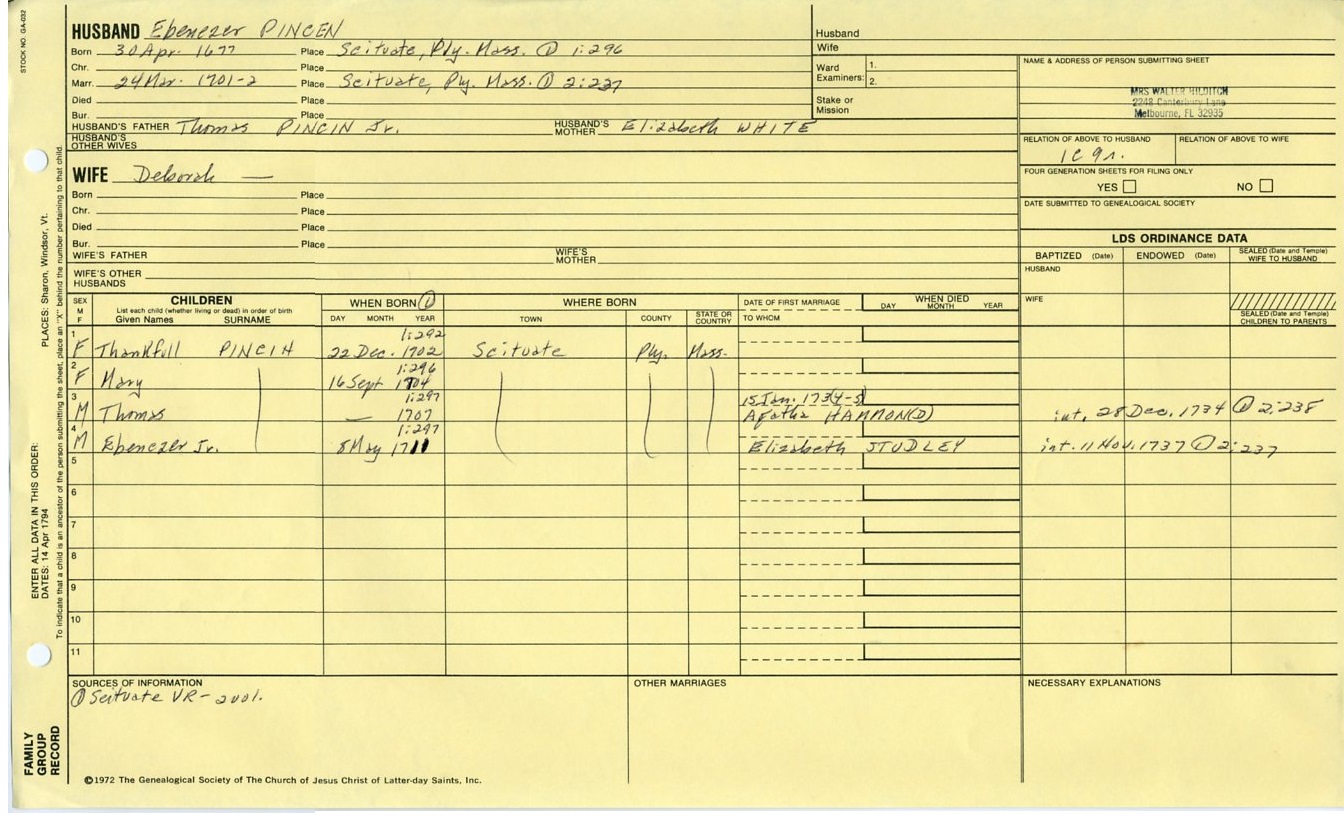 STOCK NO. GA-032
HUSBAND Ebenezer PINCEN
Born 30 Apr. 1677 Place Scituate, Ply. Mass. ① 1:296
Chr. Place
Marr. 24 Mar. 1701-2 Place Scituate, Ply. Mass. ① 2:237
Died Place
Bur. Place
HUSBAND'S FATHER Thomas PINCIN Jr. HUSBAND'S MOTHER Elizabeth WHITE
HUSBAND'S OTHER WIVES
Husband
Wife
Ward Examiners: 1.
2.
Stake or Mission
NAME & ADDRESS OF PERSON SUBMITTING SHEET
MRS WALTER HILDITCH
2248 Canterbury Lane
Melbourne, FL 32935
RELATION OF ABOVE TO HUSBAND RELATION OF ABOVE TO WIFE
1C 9r.
FOUR GENERATION SHEETS FOR FILING ONLY
YES NO
DATE SUBMITTED TO GENEALOGICAL SOCIETY
WIFE Deborah —
Born Place
Chr. Place
Died Place
Bur. Place
WIFE'S FATHER WIFE'S MOTHER
WIFE'S OTHER HUSBANDS
LDS ORDINANCE DATA
BAPTIZED (Date) ENDOWED (Date) SEALED (Date and Temple) WIFE TO HUSBAND
HUSBAND
WIFE
SEALED (Date and Temple) CHILDREN TO PARENTS
SEX M F
CHILDREN
List each child (whether living or dead) in order of birth
Given Names SURNAME
WHEN BORN ①
DAY MONTH YEAR
WHERE BORN
TOWN COUNTY STATE OR COUNTRY
DATE OF FIRST MARRIAGE
TO WHOM
WHEN DIED
DAY MONTH YEAR
1:292
1 F Thankfull PINCIN 22 Dec. 1702 Scituate Ply. Mass.
1:296
2 F Mary 16 Sept 1704
1:297 15 Jan. 1734-5
3 M Thomas — 1707 Agatha HAMMON(D) int. 28 Dec. 1734 ① 2:238
1:297
4 M Ebenezer Jr. 8 May 1711 Elizabeth STUDLEY int. 11 Nov. 1737 ① 2:237
5
6
7
8
9
10
11
SOURCES OF INFORMATION
① Scituate VR- 2 vol.
OTHER MARRIAGES
NECESSARY EXPLANATIONS
©1972 The Genealogical Society of The Church of Jesus Christ of Latter-day Saints, Inc.
FAMILY
GROUP
RECORD
ENTER ALL DATA IN THIS ORDER:
DATES: 14 Apr 1794 PLACES: Sharon, Windsor, Vt.
To indicate that a child is an ancestor of the person submitting the sheet, place an "X" behind the number pertaining to that child.